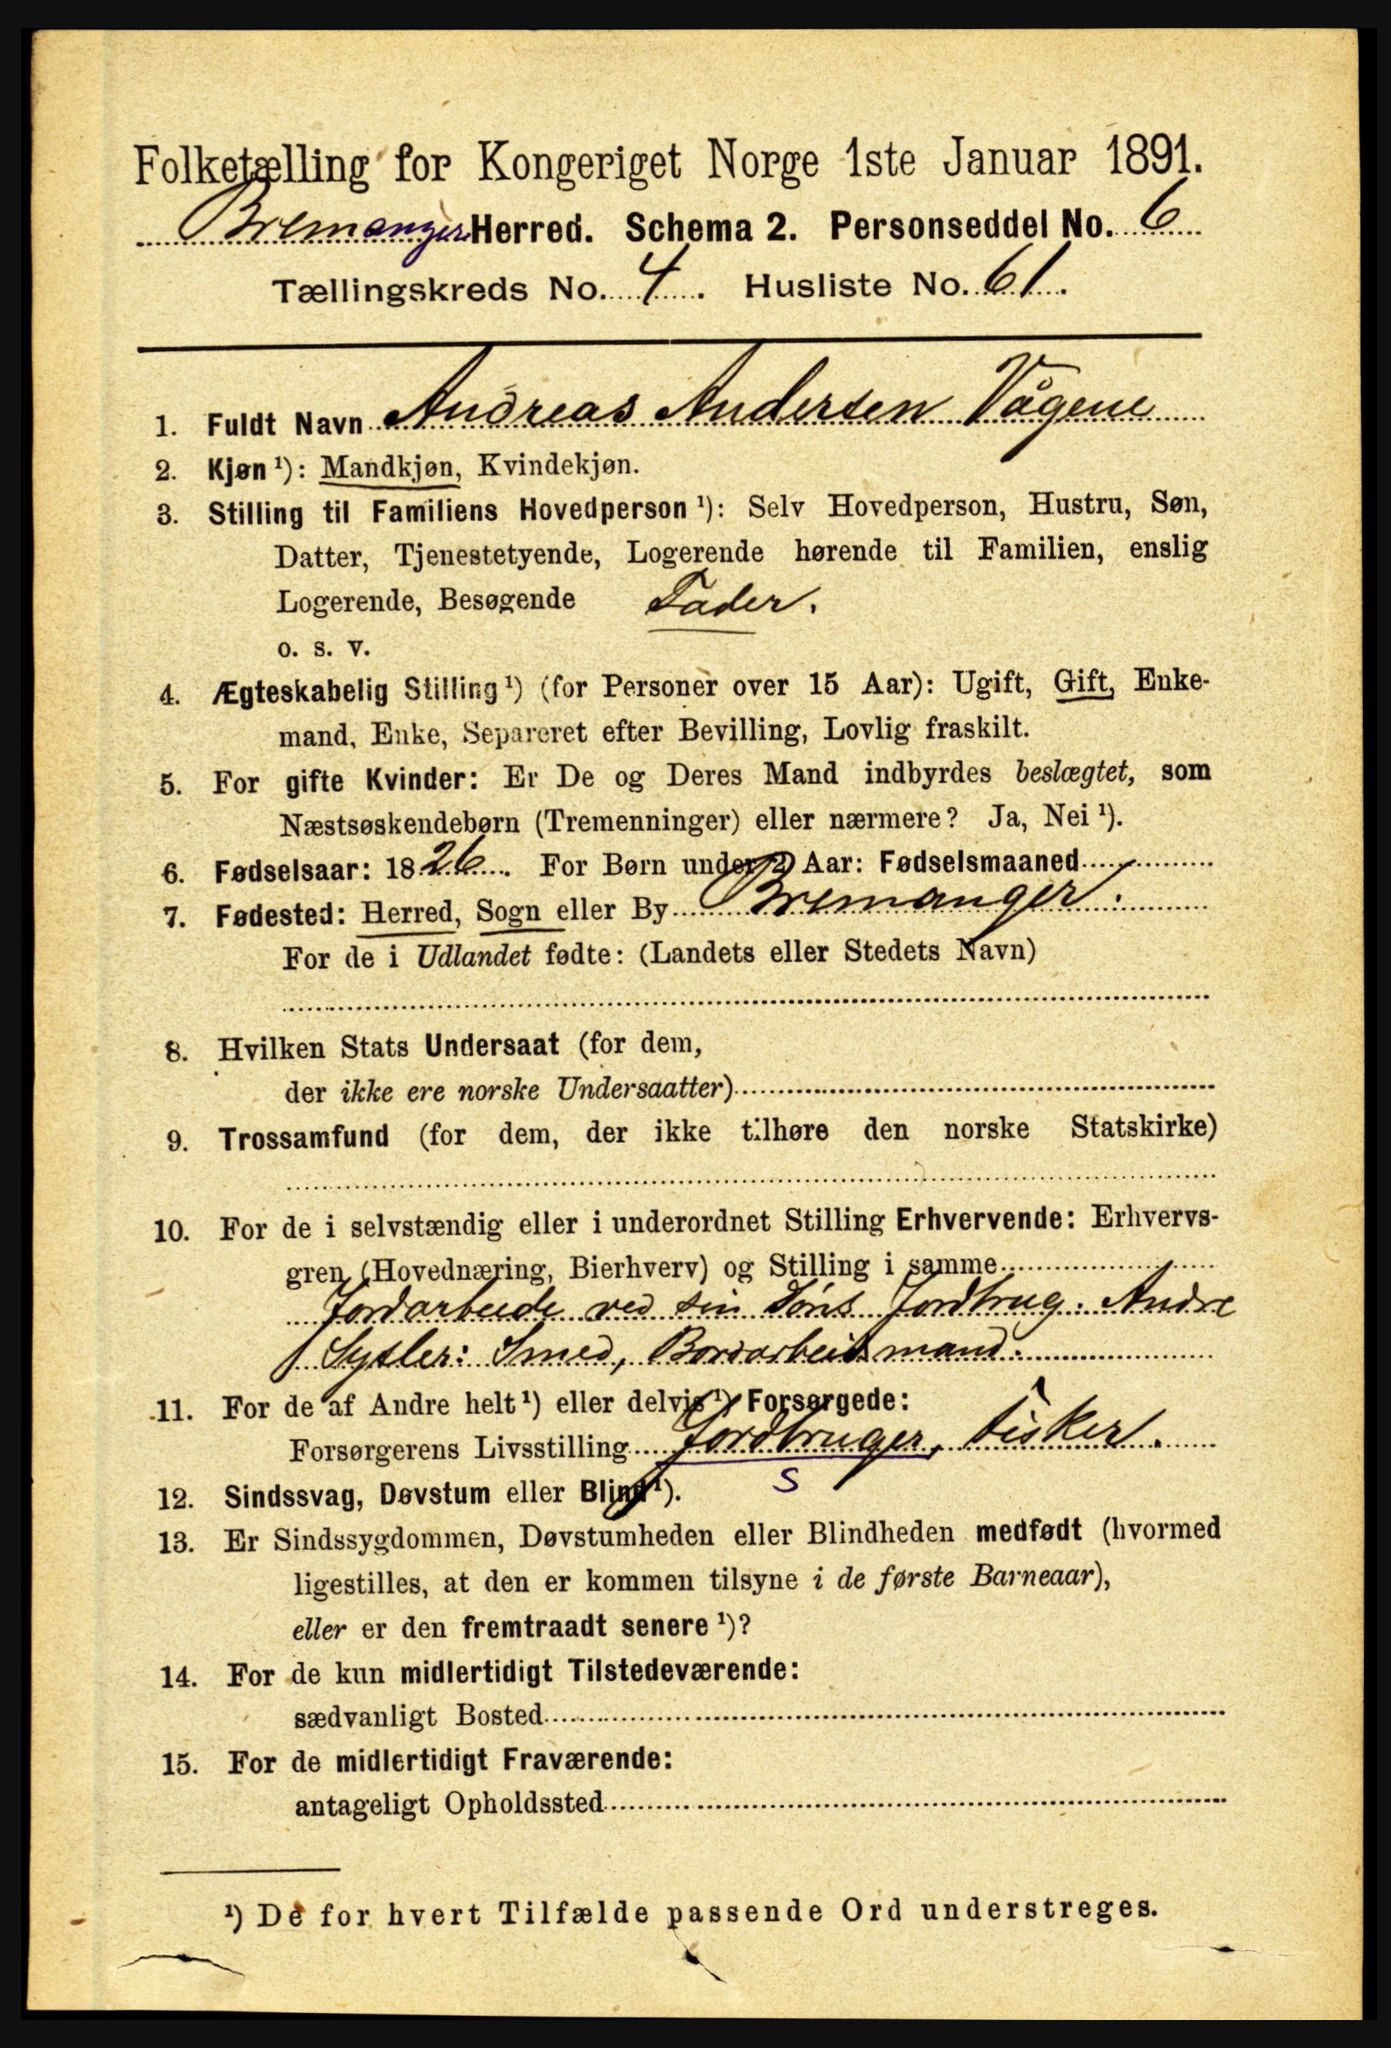 Folketælling for Kongeriget Norge 1ste Januar 1891.
Bremanger Herred. Schema 2. Personseddel No. 6
Tællingskreds No. 4. Husliste No. 61.
1. Fuldt Navn Andreas Andersen Vågene
2. Kjøn ¹): Mandkjøn, Kvindekjøn.
3. Stilling til Familiens Hovedperson ¹): Selv Hovedperson, Hustru, Søn,
Datter, Tjenestetyende, Logerende hørende til Familien, enslig
Logerende, Besøgende Fader.
o. s. v.
4. Ægteskabelig Stilling ¹) (for Personer over 15 Aar): Ugift, Gift, Enke-
mand, Enke, Separeret efter Bevilling, Lovlig fraskilt.
5. For gifte Kvinder: Er De og Deres Mand indbyrdes beslægtet, som
Næstsøskendebørn (Tremenninger) eller nærmere? Ja, Nei ¹).
6. Fødselsaar: 1826. For Børn under 2 Aar: Fødselsmaaned
7. Fødested: Herred, Sogn eller By Bremanger.
For de i Udlandet fødte: (Landets eller Stedets Navn)
8. Hvilken Stats Undersaat (for dem,
der ikke ere norske Undersaatter)
9. Trossamfund (for dem, der ikke tilhøre den norske Statskirke)
10. For de i selvstændig eller i underordnet Stilling Erhvervende: Erhvervs-
gren (Hovednæring, Bierhverv) og Stilling i samme
Jordarbeide ved sin Søns Jordbrug. Andre
Sysler: Smed, Bordarbeidsmand.
11. For de af Andre helt ¹) eller delvis ¹) Forsørgede:
Forsørgerens Livsstilling Jordbruger, Fisker.
S
12. Sindssvag, Døvstum eller Blind ¹).
13. Er Sindssygdommen, Døvstumheden eller Blindheden medfødt (hvormed
ligestilles, at den er kommen tilsyne i de første Barneaar),
eller er den fremtraadt senere ¹)?
14. For de kun midlertidigt Tilstedeværende:
sædvanligt Bosted
15. For de midlertidigt Fraværende:
antageligt Opholdssted
¹) De for hvert Tilfælde passende Ord understreges.